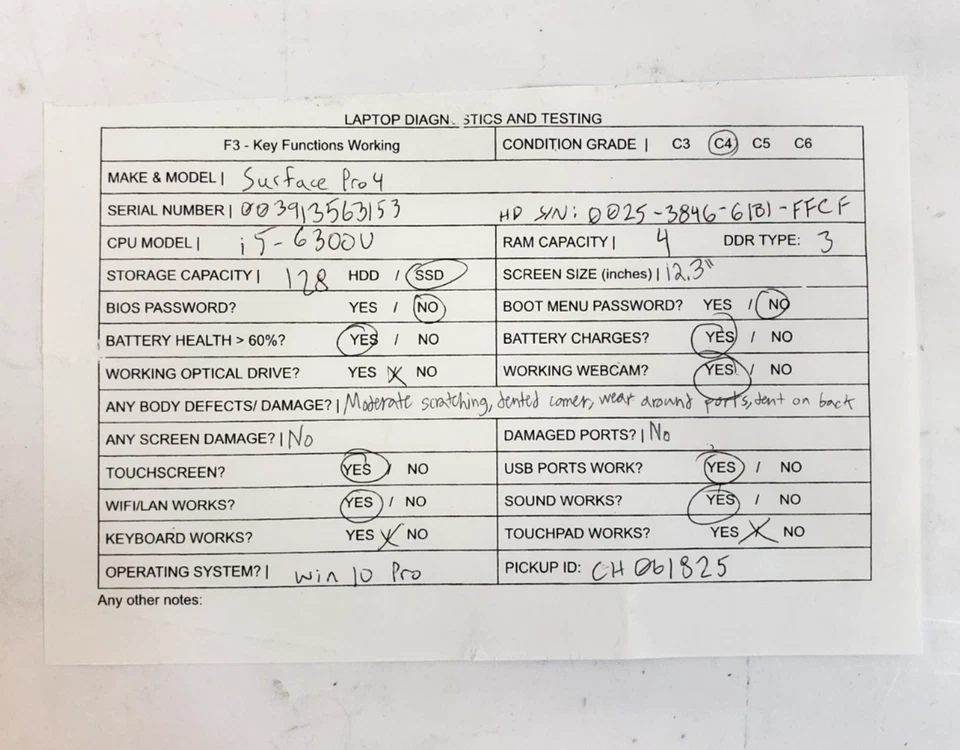 LAPTOP DIAGN STICS AND TESTING
F3 - Key Functions Working CONDITION GRADE | C3 C4 C5 C6
MAKE & MODEL | Surface Pro 4
SERIAL NUMBER | 003913563153 HD S/N: 0025-3846-61B1-FFCF
CPU MODEL | i5-6300U RAM CAPACITY | 4 DDR TYPE: 3
STORAGE CAPACITY | 128 HDD / SSD SCREEN SIZE (inches) | 12.3"
BIOS PASSWORD? YES / NO BOOT MENU PASSWORD? YES / NO
BATTERY HEALTH > 60%? YES / NO BATTERY CHARGES? YES / NO
WORKING OPTICAL DRIVE? YES X NO WORKING WEBCAM? YES / NO
ANY BODY DEFECTS/ DAMAGE? | Moderate scratching, dented corner, wear around ports, dent on back
ANY SCREEN DAMAGE? | No DAMAGED PORTS? | No
TOUCHSCREEN? YES / NO USB PORTS WORK? YES / NO
WIFI/LAN WORKS? YES / NO SOUND WORKS? YES / NO
KEYBOARD WORKS? YES X NO TOUCHPAD WORKS? YES X NO
OPERATING SYSTEM? | Win 10 Pro PICKUP ID: CH061825
Any other notes: